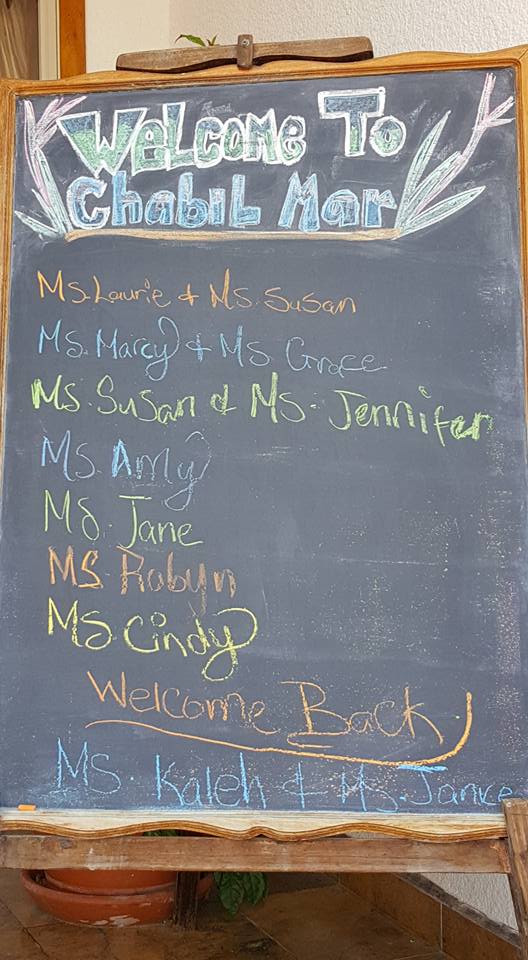 Welcome To
Chabil Mar
Ms. Laurie & Ms. Susan
Ms. Marcy & Ms Grace
Ms. Susan & Ms. Jennifer
Ms. Amy
Ms. Jane
Ms Robyn
Ms. Cindy
Welcome Back
Ms. Kaleh & Ms. Janice